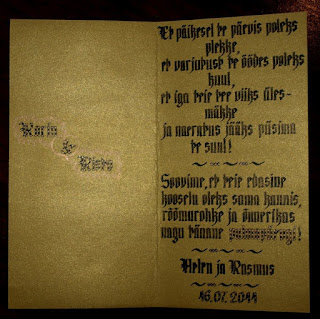 Karin
&
Risto
Et päikesel te päevis poleks
plekke,
et varjutust te öödes poleks
kuul,
et iga teie tee viiks üles-
mäkke
ja naeratus jääks püsima
te suul!
Soovime, et teie edasine
kooselu oleks sama kaunis,
rõõmurohke ja õnnerikas
nagu tänane pulmapäevgi!
Helen ja Rasmus
16.07.2011